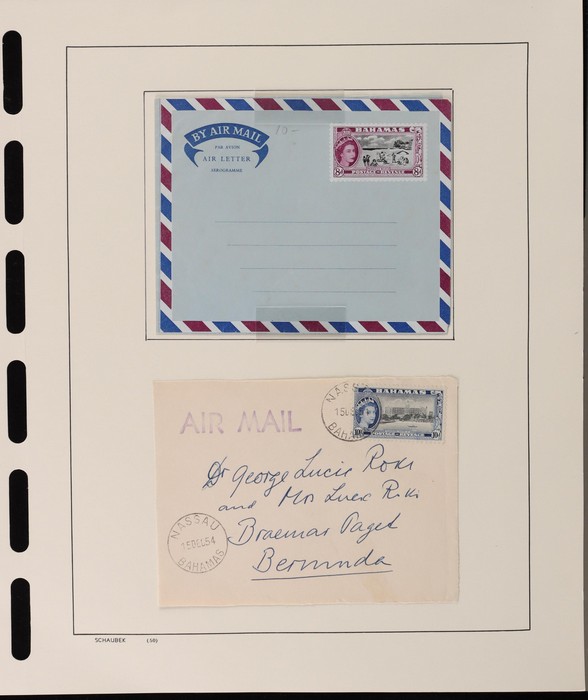 10-
BY AIR MAIL
PAR AVION
AIR LETTER
AEROGRAMME
BAHAMAS
8d
POSTAGE REVENUE
AIR MAIL
NASSAU
BAHAMAS
BAHAMAS
10/
POSTAGE REVENUE
Dr George Lucie Roks
and Mrs
Braemar Paget
Bermuda
NASSAU
15DE54
BAHAMAS
SCHAUBEK (50)